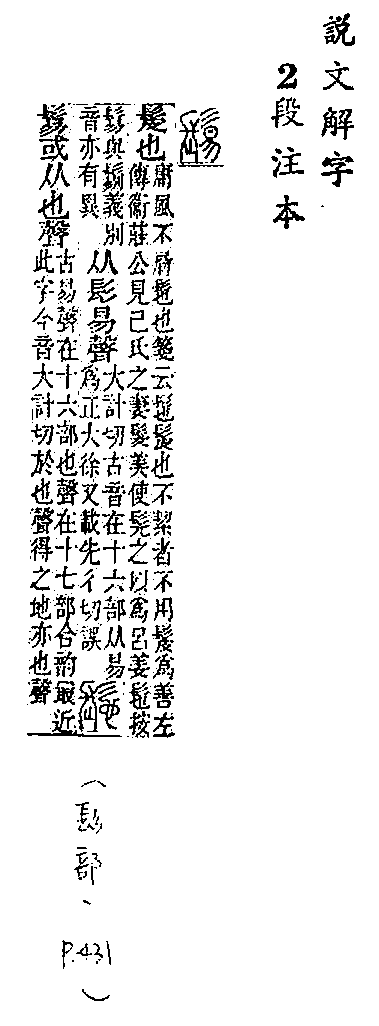 説文解字
2段注本
鬄
髲也
鄘風不屑髢也箋云髢髲也不絜者不用髲爲善左
傳衞莊公見己氏之妻髮美使髡之以爲呂姜髢按
鬄與䰂義別
音亦有異
从髟易聲
大計切古音在十六部从易
爲正大徐又載先彳切誤
髢
鬄或从也聲
古易聲在十六部也聲在十七部合韵最近
此字今音大計切於也聲得之地亦也聲
(髟部、P.431)